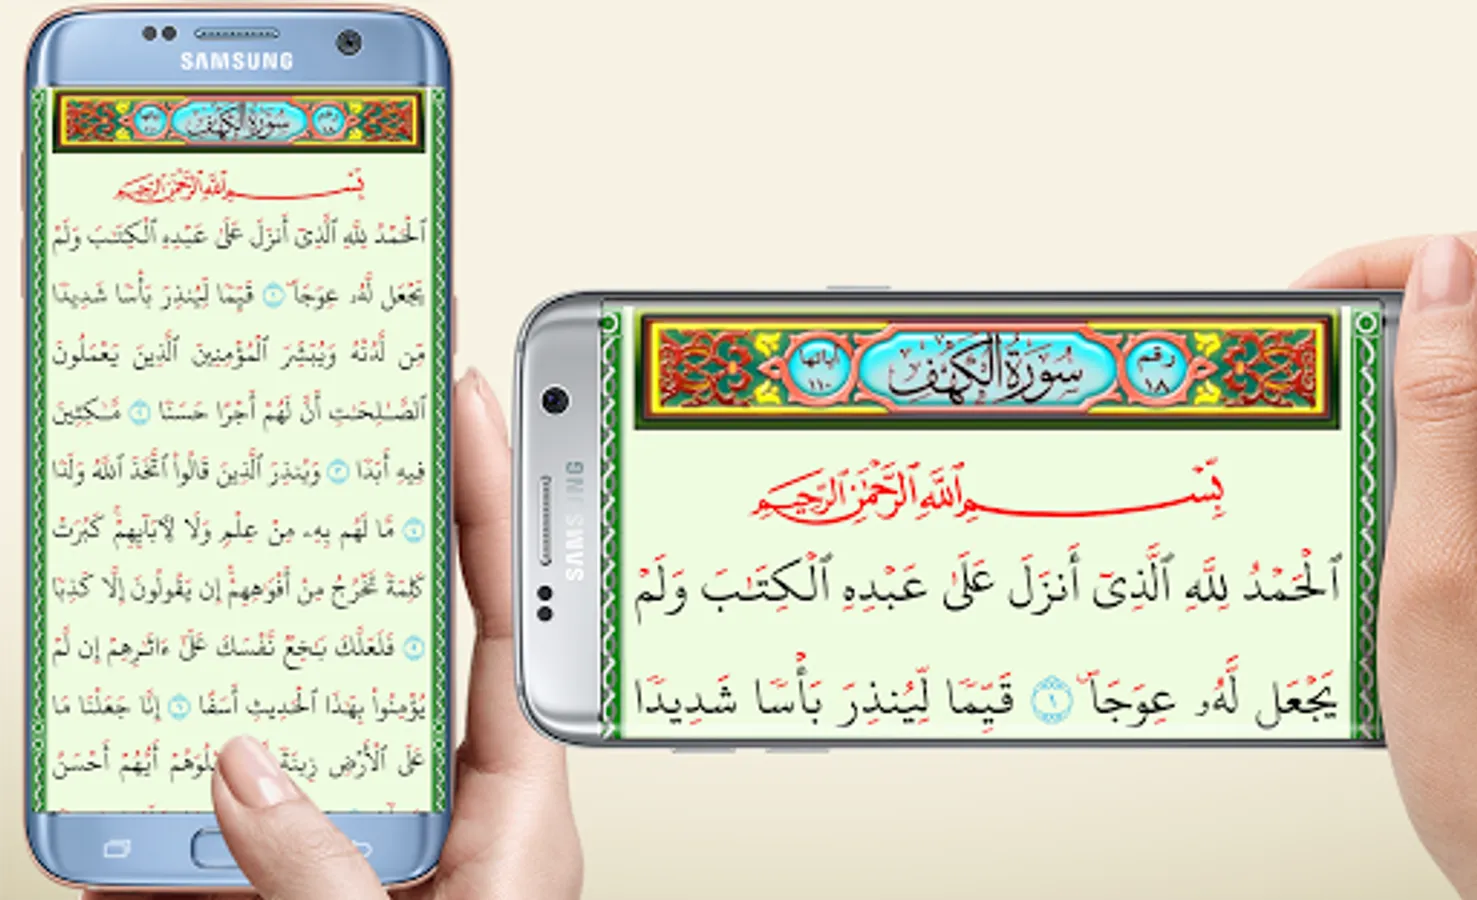 SAMSUNG
آياتها ١١٠ سُورَةُ الكَهْف رقم ١٨
بِسْمِ ٱللَّهِ ٱلرَّحْمَٰنِ ٱلرَّحِيمِ
ٱلْحَمْدُ لِلَّهِ ٱلَّذِىٓ أَنزَلَ عَلَىٰ عَبْدِهِ ٱلْكِتَٰبَ وَلَمْ
يَجْعَل لَّهُۥ عِوَجَاۜ ١ قَيِّمًا لِّيُنذِرَ بَأْسًا شَدِيدًا
مِّن لَّدُنْهُ وَيُبَشِّرَ ٱلْمُؤْمِنِينَ ٱلَّذِينَ يَعْمَلُونَ
ٱلصَّٰلِحَٰتِ أَنَّ لَهُمْ أَجْرًا حَسَنًا ٢ مَّٰكِثِينَ
فِيهِ أَبَدًا ٣ وَيُنذِرَ ٱلَّذِينَ قَالُوا۟ ٱتَّخَذَ ٱللَّهُ وَلَدًا
٤ مَّا لَهُم بِهِۦ مِنْ عِلْمٍ وَلَا لِءَابَآئِهِمْ ۚ كَبُرَتْ
كَلِمَةً تَخْرُجُ مِنْ أَفْوَٰهِهِمْ ۚ إِن يَقُولُونَ إِلَّا كَذِبًا
٥ فَلَعَلَّكَ بَٰخِعٌ نَّفْسَكَ عَلَىٰٓ ءَاثَٰرِهِمْ إِن لَّمْ
يُؤْمِنُوا۟ بِهَٰذَا ٱلْحَدِيثِ أَسَفًا ٦ إِنَّا جَعَلْنَا مَا
عَلَى ٱلْأَرْضِ زِينَةً أَيُّهُمْ أَحْسَنُ
SAMSUNG
رقم ١٨ سُورَةُ الكَهْف آياتها ١١٠
بِسْمِ ٱللَّهِ ٱلرَّحْمَٰنِ ٱلرَّحِيمِ
ٱلْحَمْدُ لِلَّهِ ٱلَّذِىٓ أَنزَلَ عَلَىٰ عَبْدِهِ ٱلْكِتَٰبَ وَلَمْ
يَجْعَل لَّهُۥ عِوَجَاۜ ١ قَيِّمًا لِّيُنذِرَ بَأْسًا شَدِيدًا